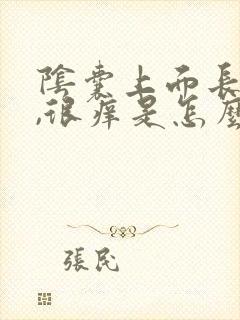 陰囊上面長
,很癢是怎麼
張民